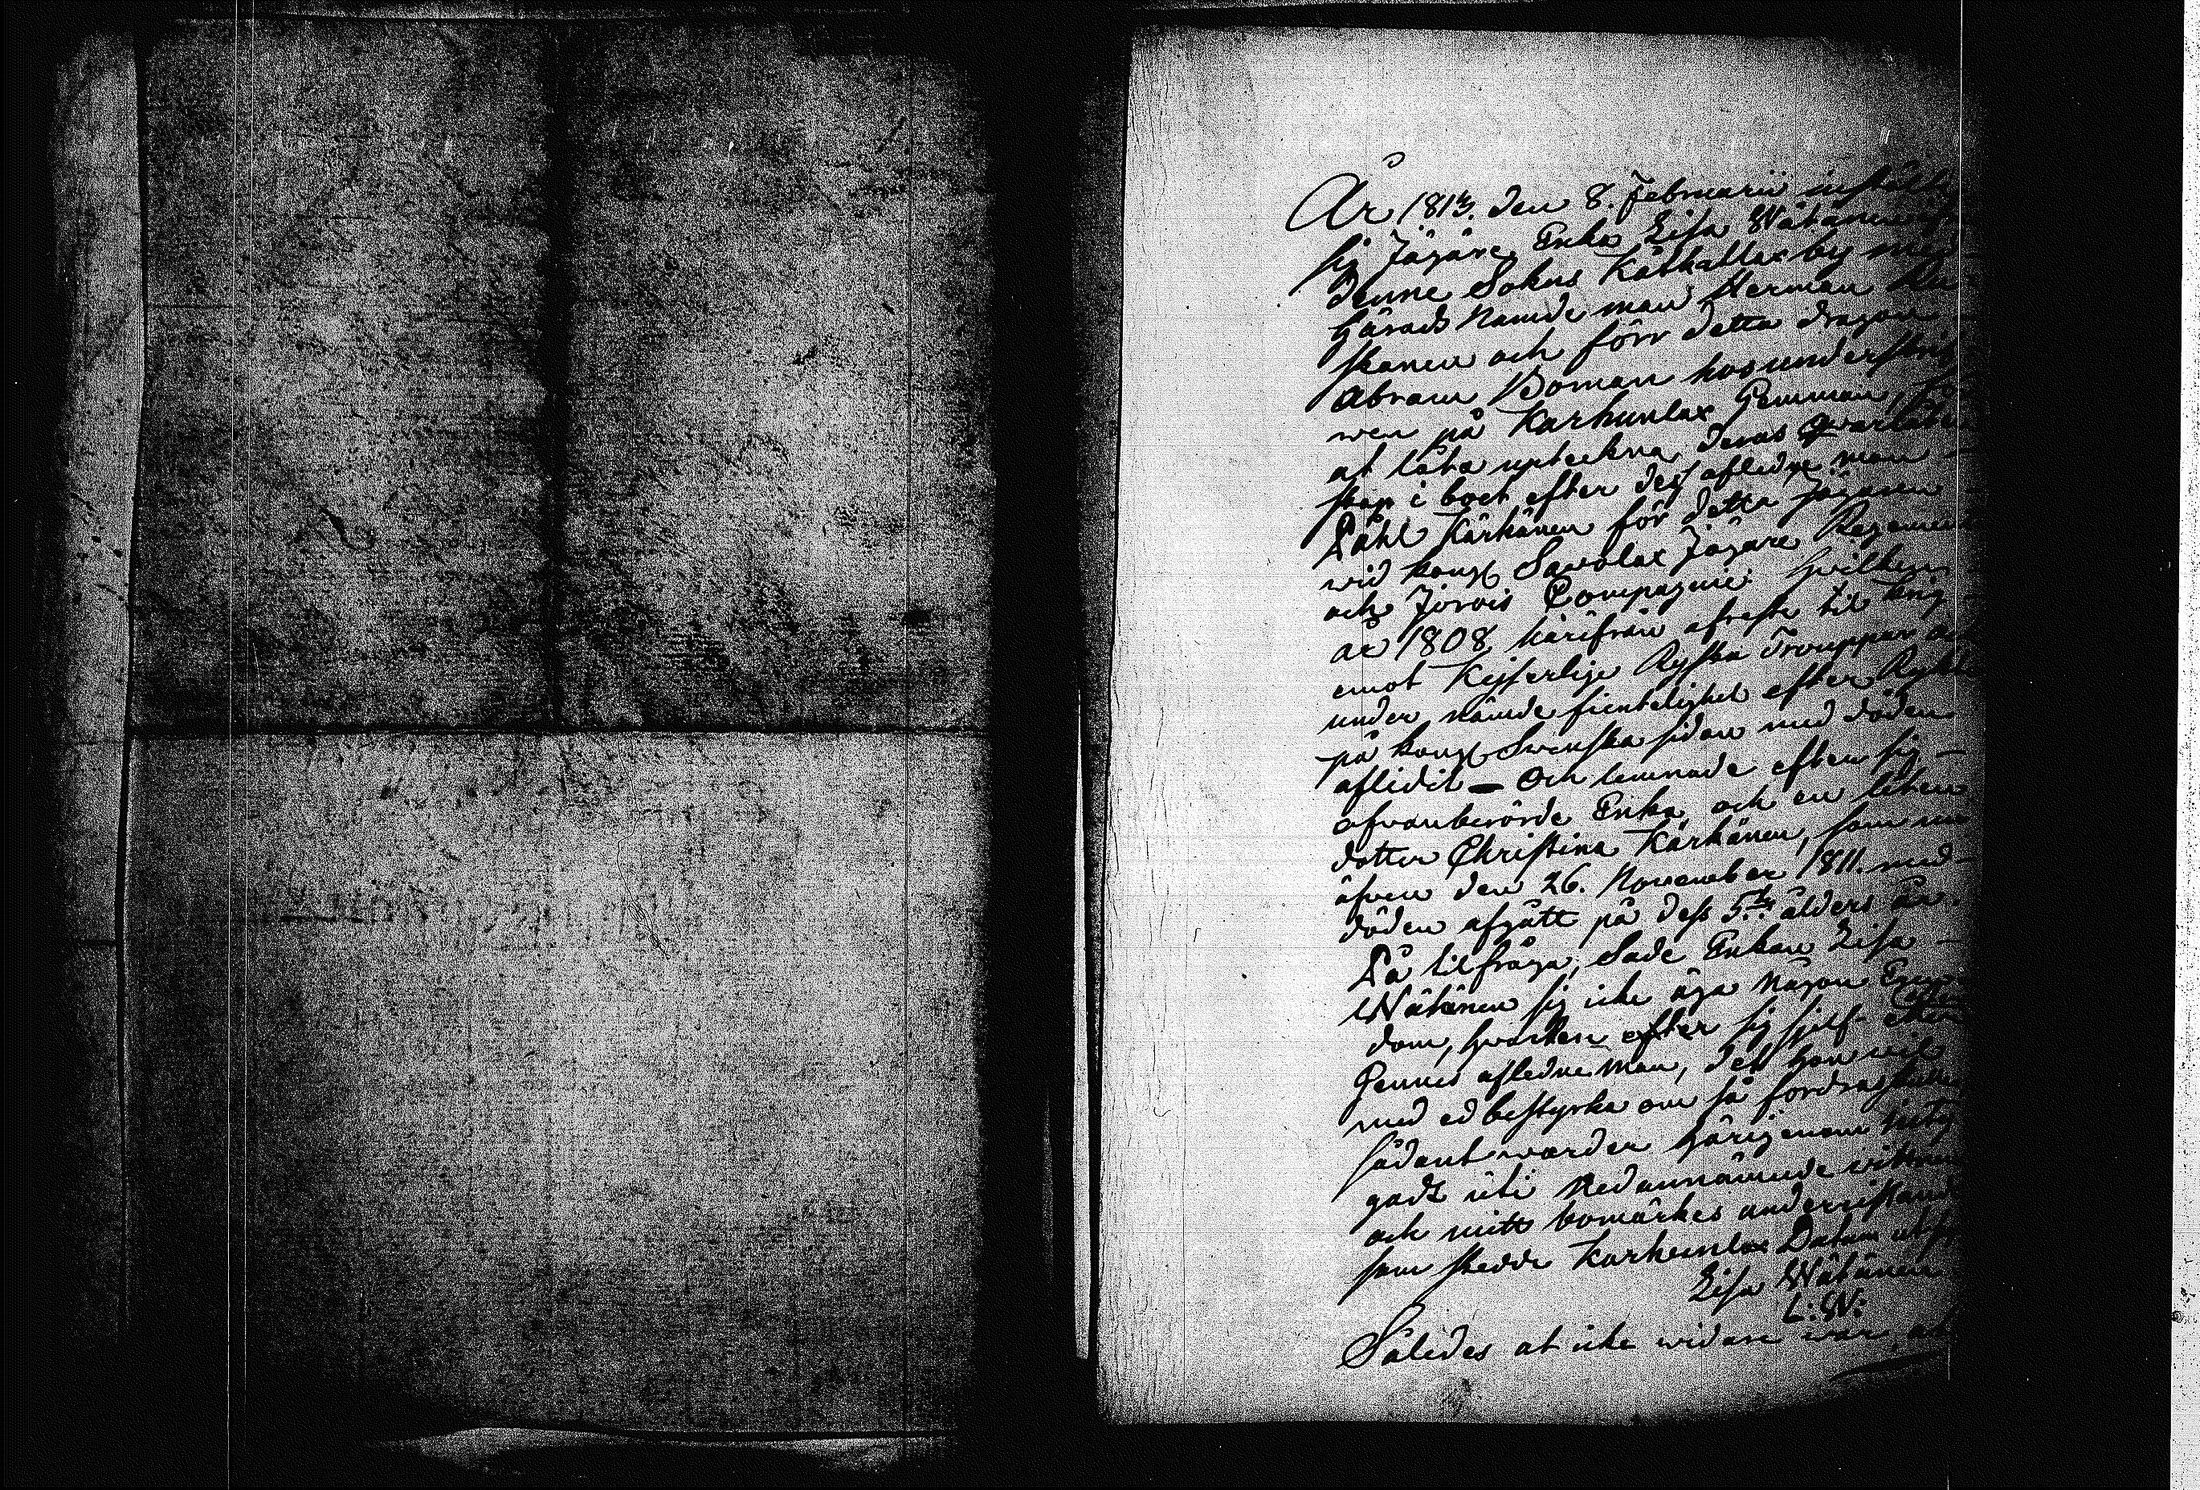 År 1813. den 8. Februarii instält
sig Jägare Enka Lisa Wätänen
denne Sokns Kätkällax by med
härads Namde man Herman
skanen och förr detta dragon
Abram Boman hos underskrif
wen på Karhunlax Hemman, för
at låta upteckna deras Qwarlåten
skap i boet efter des afledne man
Påhl Kärhänen för detta Jägaren
wid kongl Sawolax Jägare Regemente
och Jorois Compagnie: hwilken
år 1808 härifrån afreste til krig
emot Keijserlige Ryska Trouppar och
under nämde fientelighet efter Rykte
på kongl Swenska sidan med döden
aflidit – Och lemnade efter sig –
ofvanberörde Enka, och en liten
dotter Christina Kärhänen, som nu
äfven den 26. November 1811. med
döden afgått på dess 5:te ålders år.
På tilfråga, Sade Enkan Lisa –
Wätänen sig icke äga någon Egen
dom, hwarken efter sig sjelf eller
Hennes afledne Man, det hon wil
med ed bestyrka om så fordras
sådant warder härigenom
gadt uti Nedannämnde wittnen
och mitt bomärkes underrittande
som skedde Karhunlax Datum utsu
Lisa Wätänen
L: W:
Således at icke widare war at